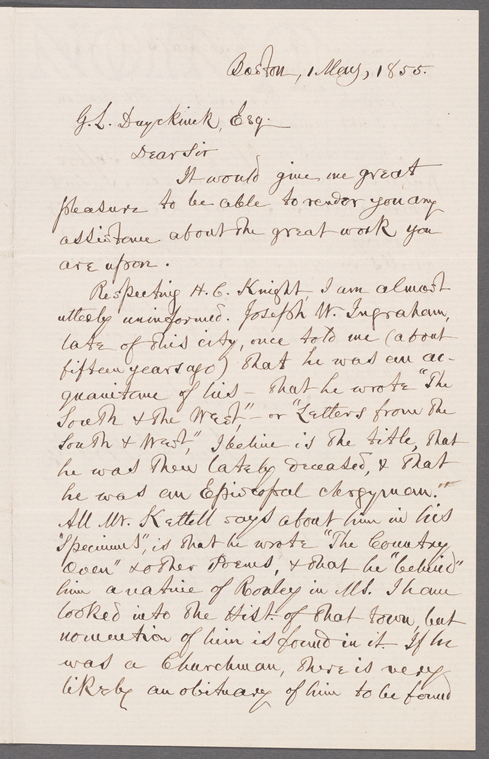 Boston, 1 May, 1855.
G. L. Duyckinck, Esq.
Dear Sir
It would give me great
pleasure to be able to render you any
assistance about the great work you
are upon.
Respecting H. C. Knight, I am almost
utterly uninformed. Joseph W. Ingraham,
late of this city, once told me (about
fifteen years ago) that he was an ac-
quaintance of his – that he wrote "The
South & the West," – or "Letters from the
South & West," I believe is the title, that
he was then lately deceased, & that
he was an Episcopal clergyman."
All Mr. Kettell says about him in his
"Specimens", is that he wrote "The Country
Oven" & other Poems, & that he "behind"
him a native of Rowley in Ms. I have
looked into the Hist. of that town, but
no mention of him is found in it. If he
was a Churchman, there is very
likely an obituary of him to be found